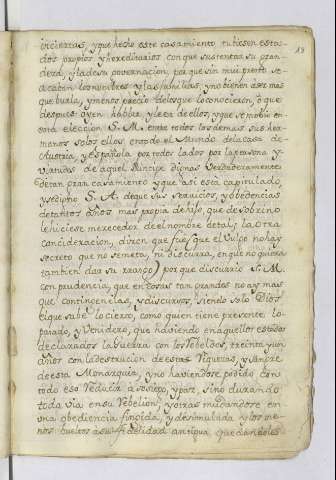 18
inciertas, y que hecho este casamiento tubiesen esta-
dos propios y hereditarios con que sustentar su gran-
deza, y la de su governacion, por que sin muy presto se
acaban los nombres y las familias, y no tienen
que burla, y menos precio de los que lo conocieron, o que
despues oyen hablar y leer de ellos, y que se mobio en
esta eleccion S. M. entre todos los demas sus her-
manos solos ellos en todo el Mundo de la Casa de
Austria, y Española por todos lados por la persona y
virtudes de aquel Principe dignas verdaderamente
de tan gran casamiento y que asi esta capitulado
y se dijo S. A. de que sus servicios, y obediencias
de tantos años mas propia de hijo que de sobrino
le hiciese merecedor de el nombre de tal; la otra
concideracion, dicen que fue que el Vulgo no hay
secreto que no se meta, ni discurra, en que no quiera
tambien dar su razon) por que discurrio S. M.
con prudencia, que en cosas tan grandes no ay mas
que contingencias, y discursos, siendo solo Dios
el que sabe lo cierto, como quien tiene presente lo
pasado, y venidero, que haviendo en aquellos estados
declarados la Guerra con los Rebeldes, treinta y un
años con la destrucion de estas Riquezas, y sangre
de esta Monarquia, y no haviendose podido con
todo eso reducir a sosiego, y paz sino durando
toda via en su Rebelion, y otras mudandose en
una obediencia fingida, y desimulada y los me-
nos bueltos a su fidelidad antigua, quedandoles